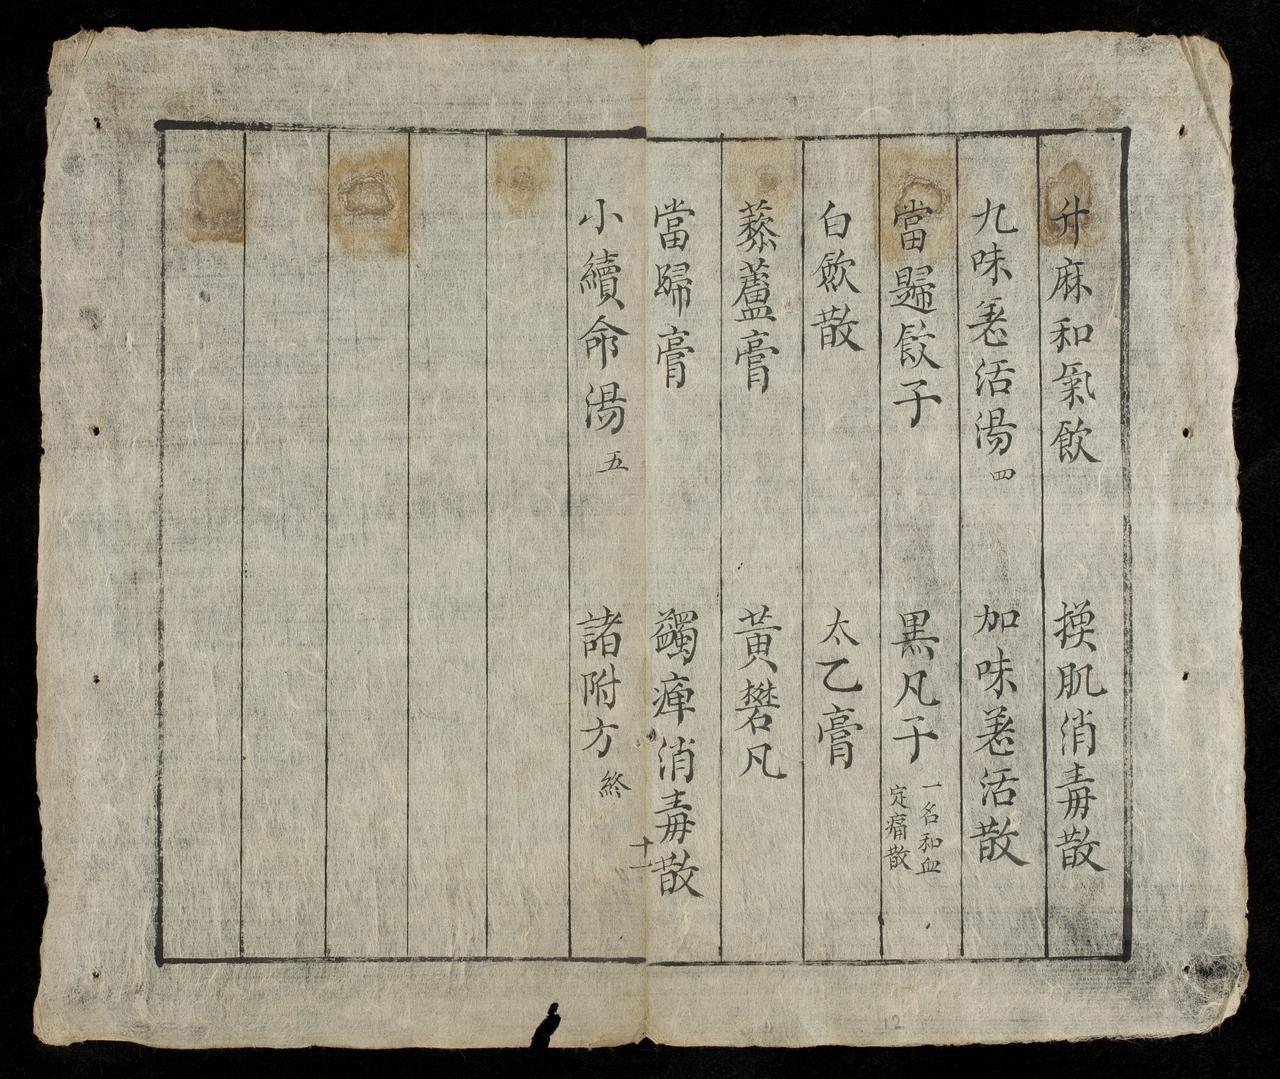 升麻和氣飲 換肌消毒散
九味羌活湯 四 加味羌活散
當歸飲子 黑凡子 一名和血定痛散
白歛散 太乙膏
藜蘆膏 黃礬凡
當歸膏 蠲痺消毒散
小續命湯 五 諸附方 終
十一
12